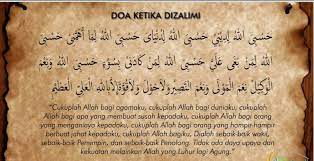 DOA KETIKA DIZALIMI
حَسْبِيَ اللهُ لِدِيْنِيْ حَسْبِيَ اللهُ لِدُنْيَايَ حَسْبِيَ اللهُ لِمَا أَهَمَّنِيْ حَسْبِيَ
اللهُ لِمَنْ بَغَى عَلَيَّ حَسْبِيَ اللهُ لِمَنْ كَادَنِيْ بِسُوْءٍ حَسْبِيَ اللهُ وَنِعْمَ
الْوَكِيْلُ نِعْمَ الْمَوْلَى وَنِعْمَ النَّصِيْرُ وَلَاحَوْلَ وَلَاقُوَّةَ إِلَّا بِاللهِ الْعَلِيِّ الْعَظِيْمِ
"Cukuplah Allah bagi agamaku, cukuplah Allah bagi duniaku, cukuplah
Allah bagi apa yang membuat susah kepadaku, cukuplah Allah bagi orang
yang menganiaya kepadaku, cukuplah Allah bagi orang yang hampir-hampir
berbuat jahat kepadaku, cukuplah Allah bagiku. Dialah sebaik-baik wakil,
sebaik-baik Pemimpin, dan sebaik-baik Penolong. Tidak ada daya upaya dan
kekuatan melainkan Allah yang Luhur lagi Agung."